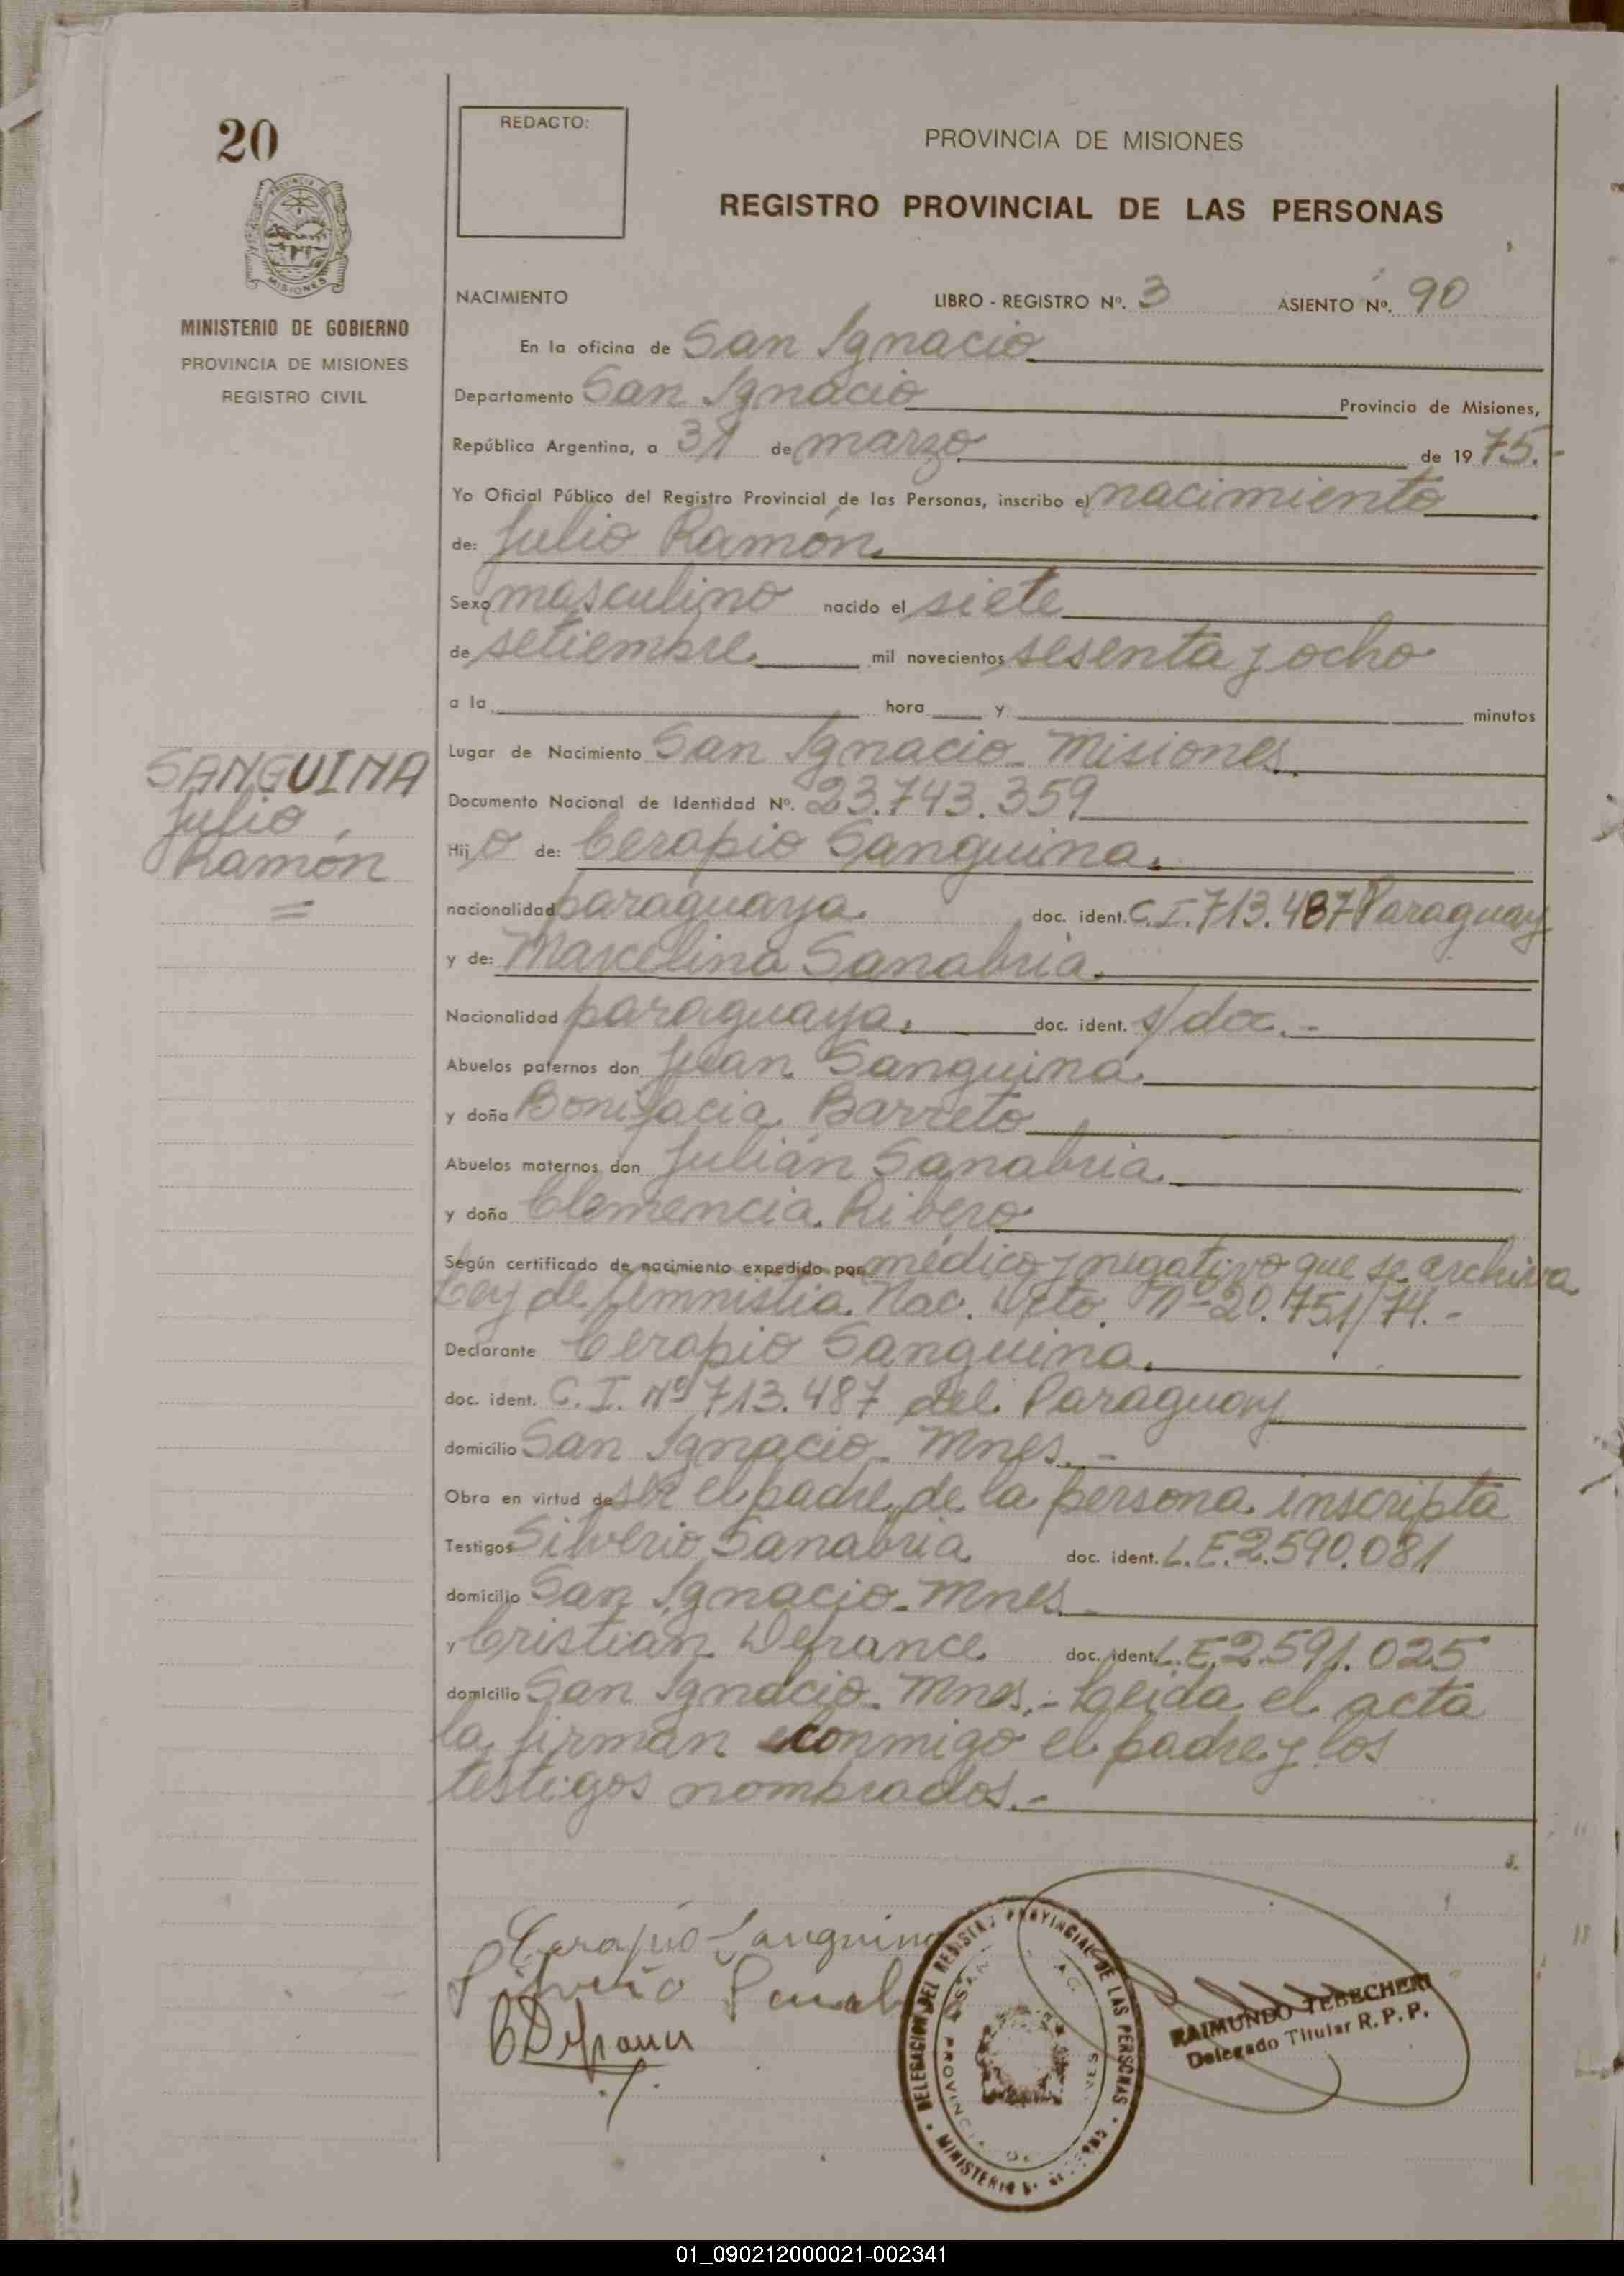 20
REDACTO:
PROVINCIA DE MISIONES
REGISTRO PROVINCIAL DE LAS PERSONAS
MISIONES
MINISTERIO DE GOBIERNO
PROVINCIA DE MISIONES
REGISTRO CIVIL
NACIMIENTO LIBRO - REGISTRO Nº. 3 ASIENTO Nº. 90
En la oficina de San Ignacio
Departamento San Ignacio Provincia de Misiones,
República Argentina, a 31 de marzo de 1975.-
Yo Oficial Público del Registro Provincial de las Personas, inscribo el nacimiento
de: Julio Ramón
Sexo masculino nacido el siete
de setiembre mil novecientos sesenta y ocho
a la hora y minutos
Lugar de Nacimiento San Ignacio - Misiones
SANGUINA
Julio
Ramón
Documento Nacional de Identidad Nº. 23.743.359
Hijo de: Cerapio Sanguina.
nacionalidad paraguaya. doc. ident. C.I. 713.487 Paraguay
y de: Marcelina Sanabria.
Nacionalidad paraguaya. doc. ident. s/doc.-
Abuelos paternos don Juan Sanguina
y doña Bonifacia Barreto
Abuelos maternos don Julián Sanabria
y doña Clemencia Ribero
Según certificado de nacimiento expedido por médico y negativo que se archiva
Ley de Amnistia Nac. Dcto. Nº 20.751/74.-
Declarante Cerapio Sanguina.
doc. ident. C.I. Nº 713.487 del Paraguay
domicilio San Ignacio - Mnes.-
Obra en virtud de ser el padre de la persona inscripta
Testigos Silverio Sanabria doc. ident. L.E. 2.590.081
domicilio San Ignacio - Mnes
y Cristian Defrance doc. ident. L.E. 2.591.025
domicilio San Ignacio - Mnes.- Leida el acta
la firman conmigo el padre y los
testigos nombrados.-
Cerapio Sanguina
Silverio
C Defrance
DELEGACION DEL REGISTRO PROVINCIAL DE LAS PERSONAS
MINISTERIO
RAIMUNDO TEBECHERI
Delegado Titular R. P. P.
01_090212000021-002341